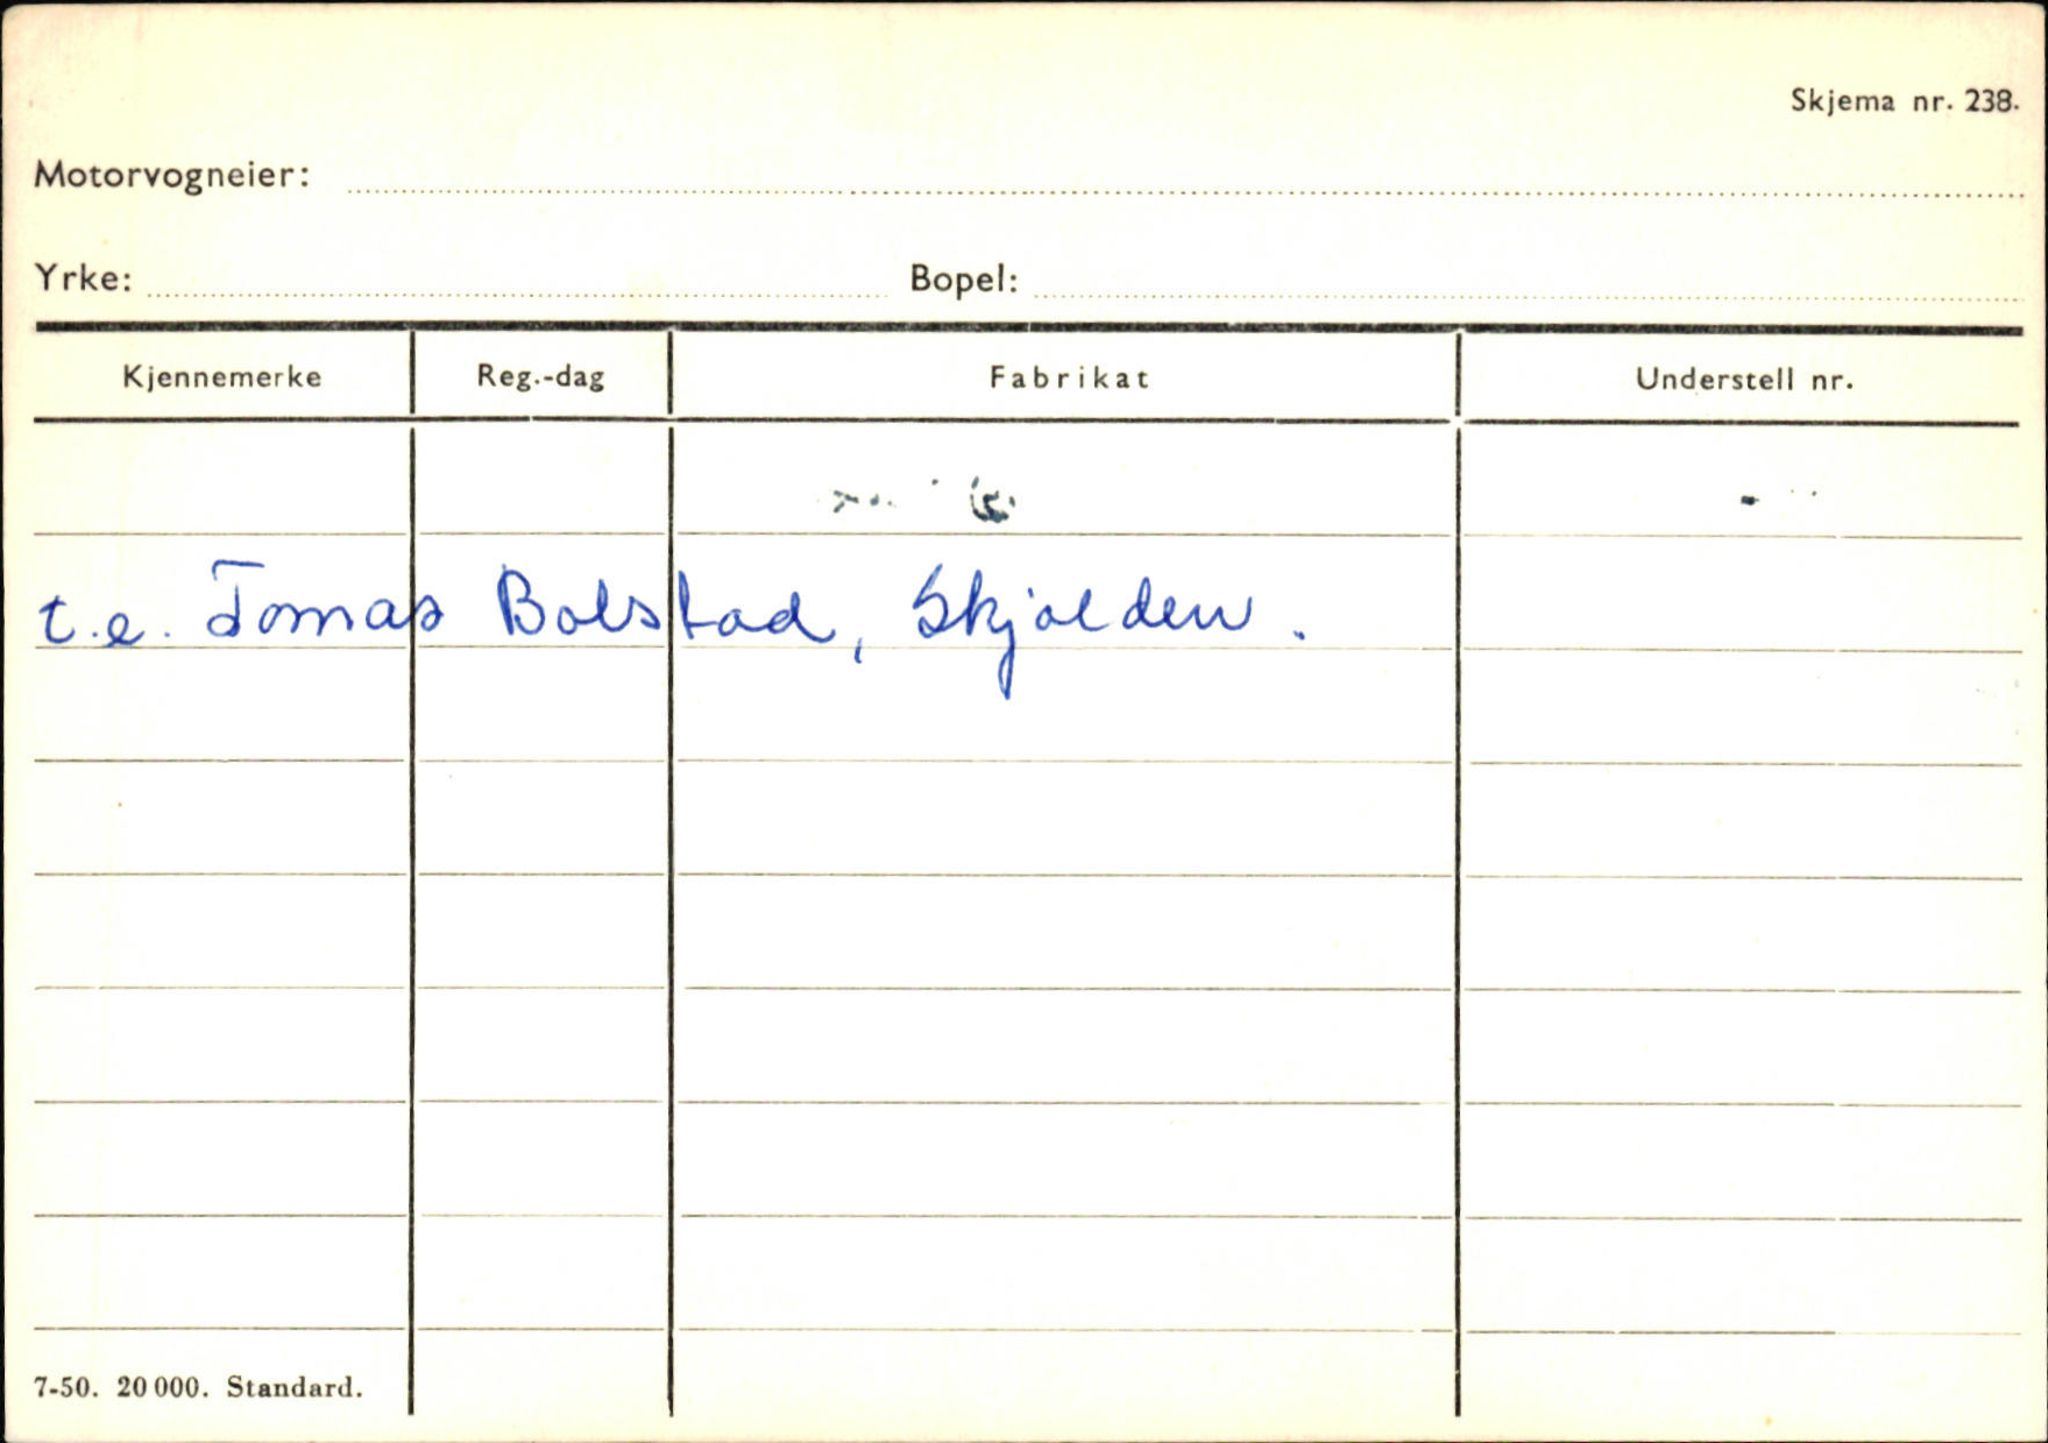 Skjema nr. 238.
Motorvogneier:
Yrke: Bopel:
Kjennemerke Reg.-dag Fabrikat Understell nr.
t.e. Tomas Bolstad, Skjolden.
7-50. 20 000. Standard.